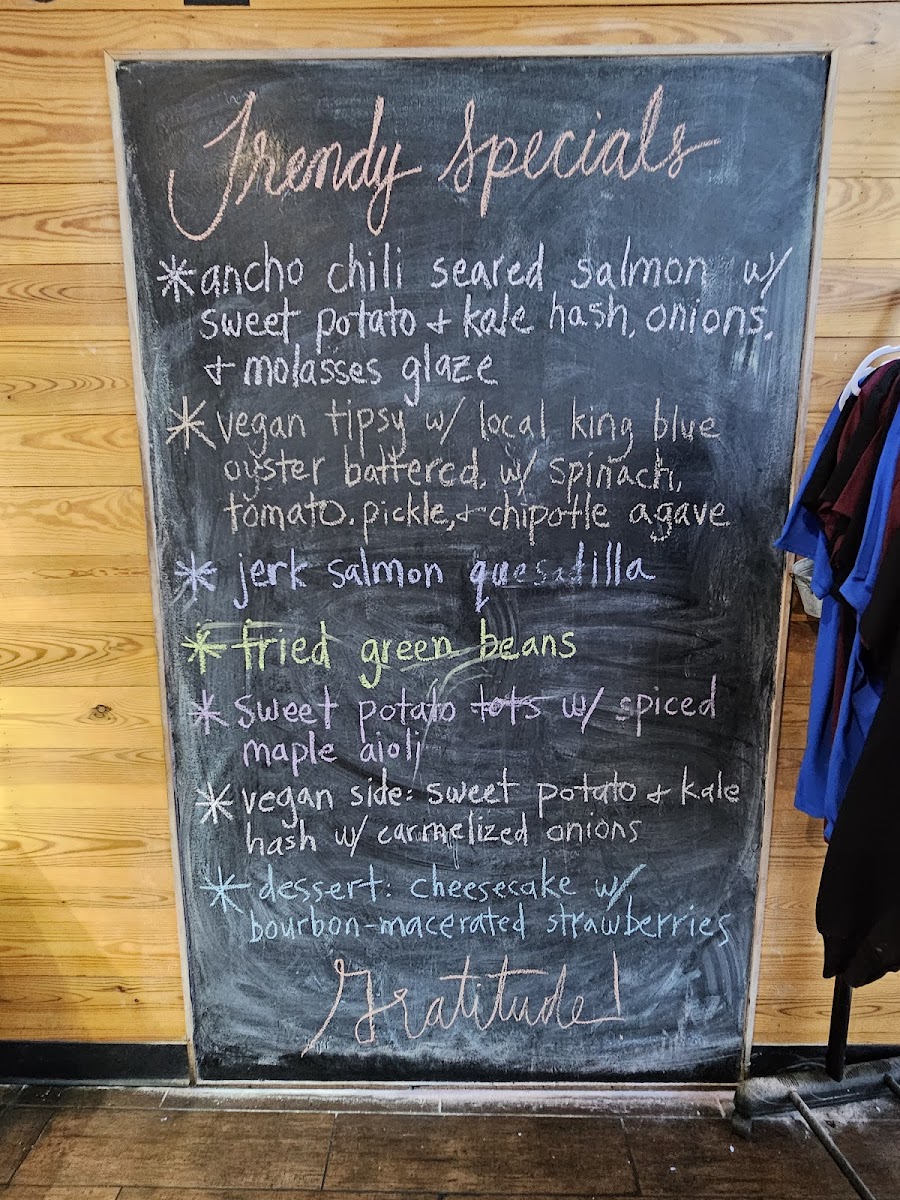 Trendy Specials
*ancho chili seared salmon w/
sweet potato + kale hash, onions,
+ molasses glaze
*vegan tipsy w/ local king blue
oyster battered, w/ spinach,
tomato, pickle, + chipotle agave
*jerk salmon quesadilla
*fried green beans
*sweet potato tots w/ spiced
maple aioli
*vegan side: sweet potato + kale
hash w/ carmelized onions
*dessert: cheesecake w/
bourbon-macerated strawberries
Gratitude!